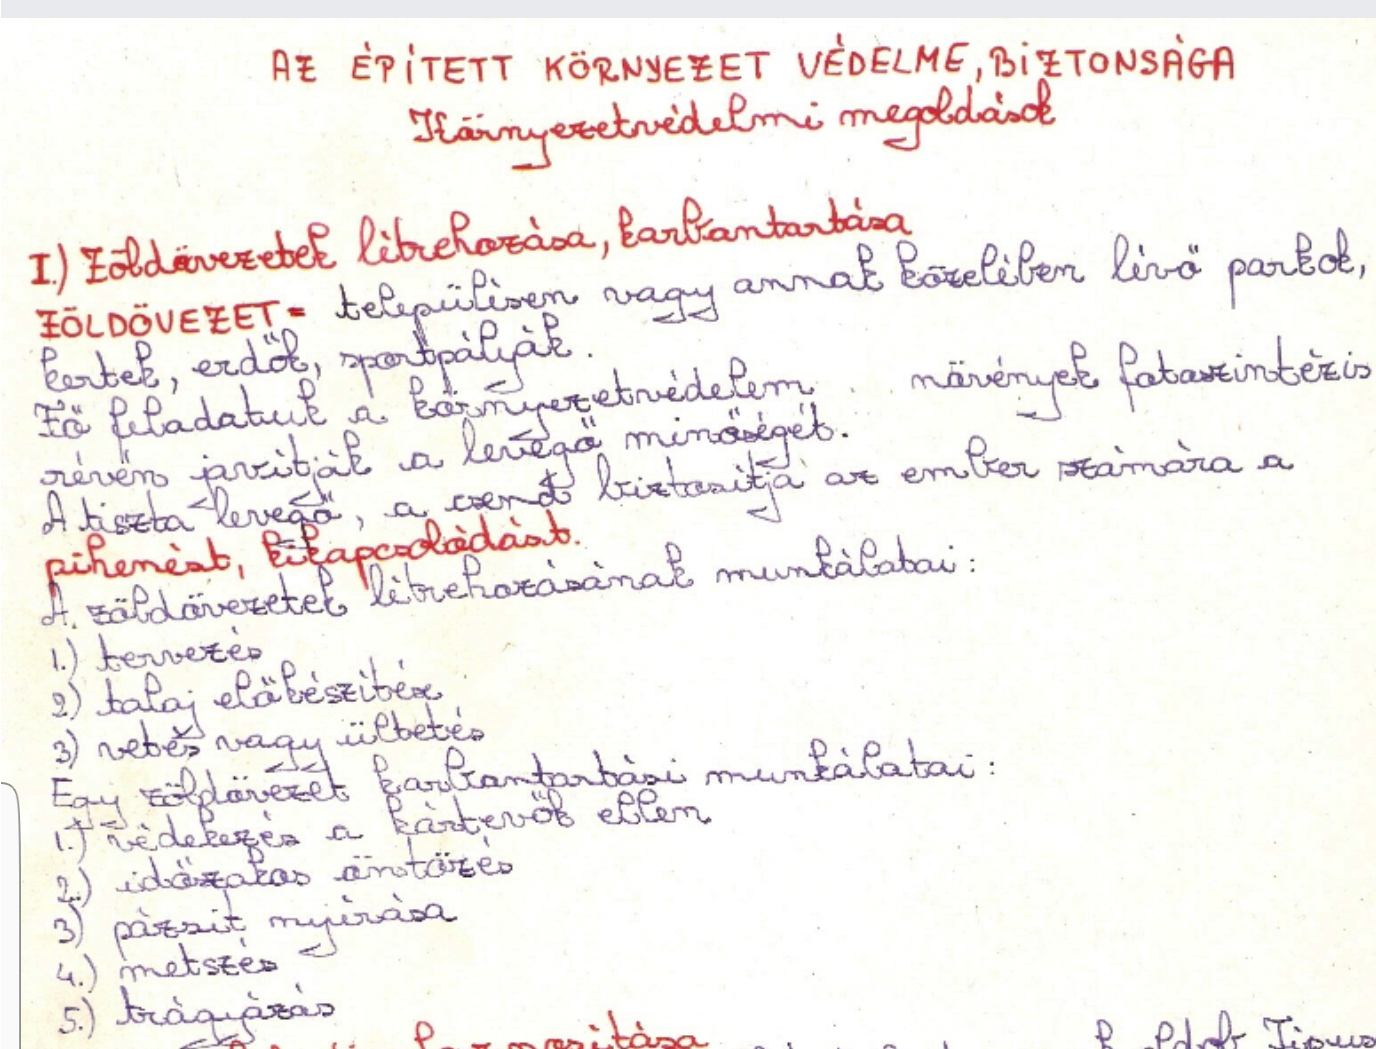 AZ ÉPÍTETT KÖRNYEZET VÉDELME, BIZTONSÁGA
Környezetvédelmi megoldások
I.) Zöldövezetek létrehozása, karbantartása
ZÖLDÖVEZET = településen vagy annak közelében lévő parkok,
kertek, erdők, sportpályák.
Fő feladatuk a környezetvédelem. növények fotaszintézis
révén javítják a levegő minőségét.
A tiszta levegő, a csend biztosítja az ember számára a
pihenést, kikapcsolódást.
A zöldövezetek létrehozásának munkálatai:
1.) tervezés
2) talaj előkészítése
3) vetés vagy ültetés
Egy zöldövezet karbantartási munkálatai:
1.) védekezés a kártevők ellen
2.) időszakos öntözés
3) pázsit nyírása
4.) metszés
5.) trágyázás